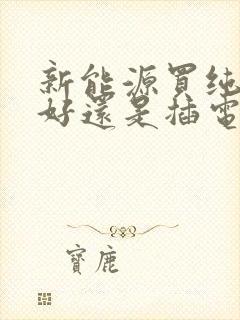 新能源買纯
好還是插電
寶鹿